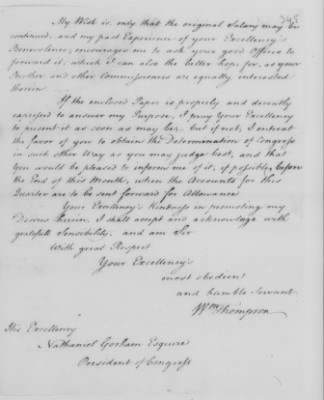 345
My Wish is, only that the original Salary may be
continued, and my past Experience of your Excellency's
Benevolence, encourages me to ask your good Offices to
forward it, which I can also the better hope for, as your
Brother and other Commissioners are equally interested
therein
If the enclosed Paper is properly and decently
expressed to answer my Purpose, I pray Your Excellency
to present it as soon as may be. but if not, I entreat
the favor of you to obtain the Determination of Congress
in such other Way as you may judge best, and that
You would be pleased to inform me of it, if possible, before
the End of this Month, when the Accounts for this
Quarter are to be sent forward for Allowance
Your Excellency's Kindness in promoting my
Desires therein, I shall accept and acknowledge with
gratefull Sensibility, and am Sir
With great Respect
Your Excellency's
most obedient
and humble Servant
Wm Thompson
His Excellency
Nathaniel Gorham Esquire
President of Congress